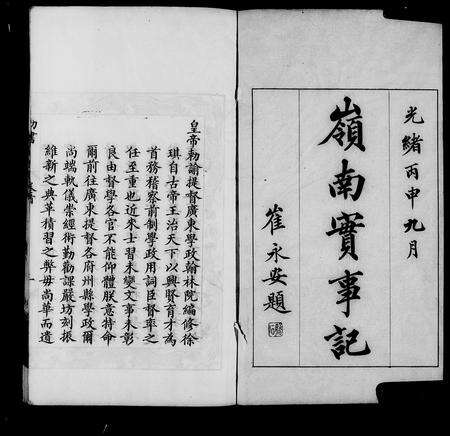 光緒丙申九月
嶺南實事記
崔永安題
皇帝勅諭提督廣東學政翰林院編修徐
琪自古帝王治天下以興賢育才為
首務稽察前制學政用詞臣督率之
任至重也近来士習未變文事未彰
良由督學各官不能仰體朕意特命
爾前往廣東提督各府州縣學政爾
尚端軌儀崇經術勤勸課嚴坊刻振
維新之典革積習之弊毋尚華而遺